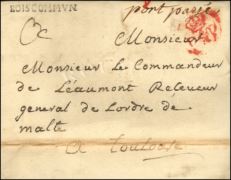 BOISCOMMVN
port payé
Monsieur
Monsieur Le Commandeur
de Léaumont Receveur
general de Lordre de
malte
a Toulouse